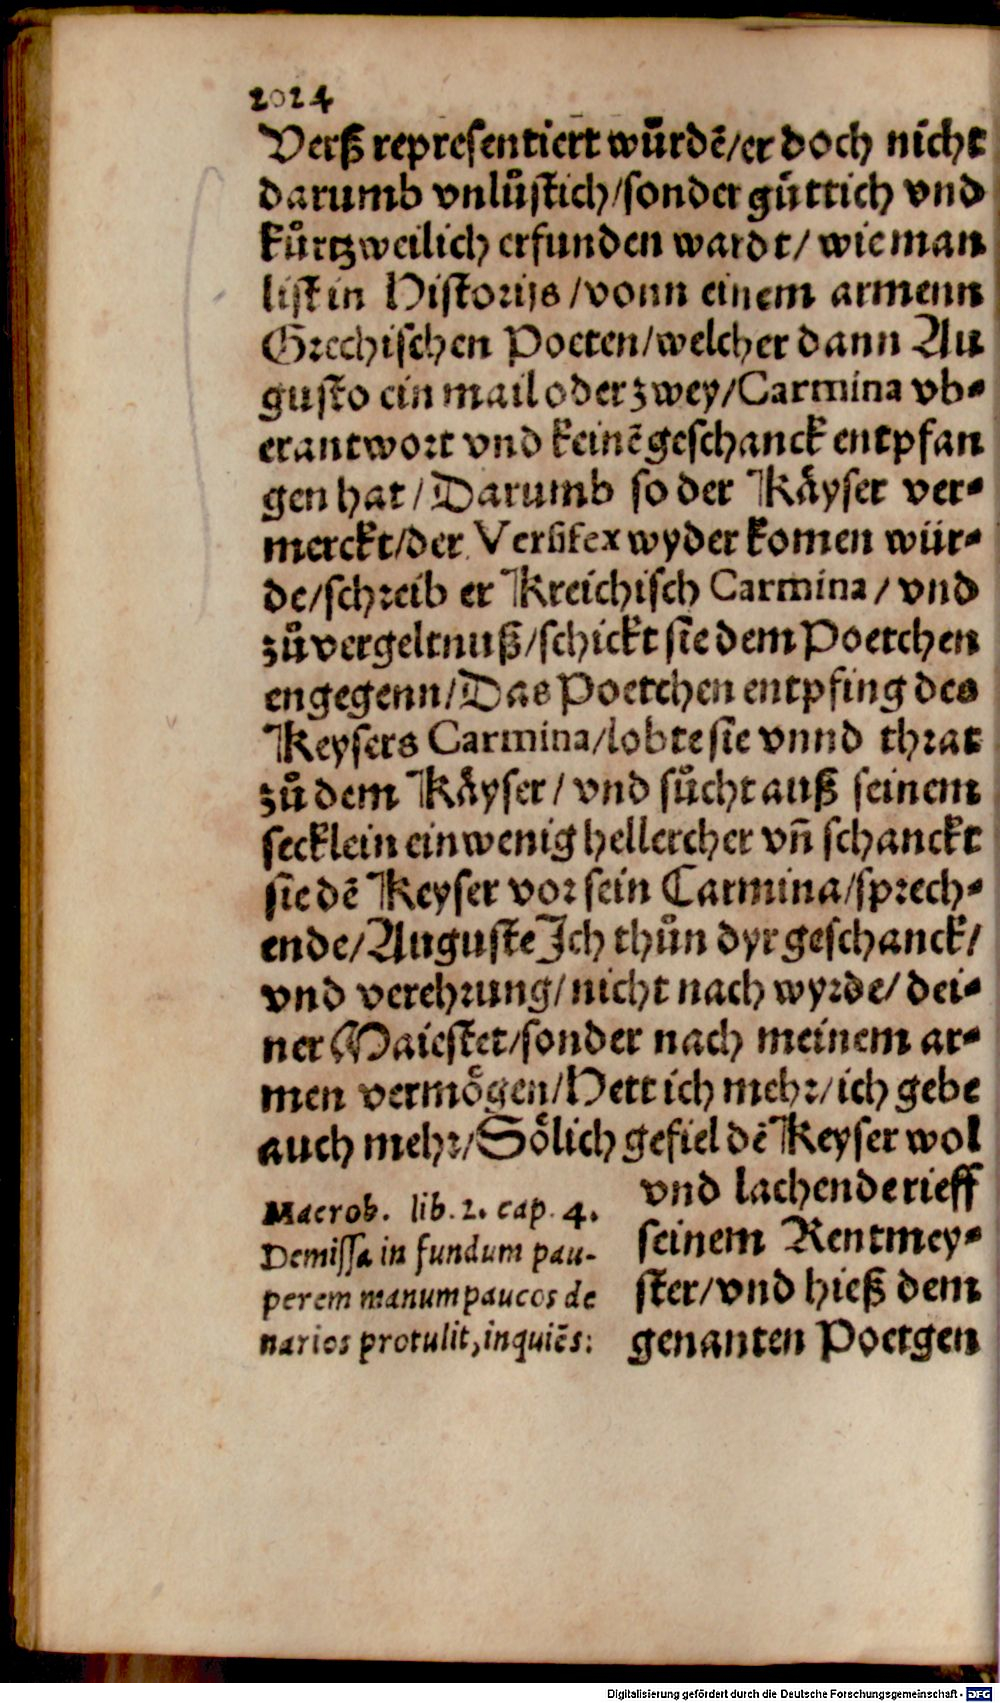 2024
Verß representiert wůrdē/er doch nicht
darumb vnlůstich/sonder gůttich vnd
kůrtzweilich erfunden wardt/ wie man
list in Historijs/vonn einem armenn
Grechischen Poeten/welcher dann Au
gusto ein mail oder zwey/Carmina vb-
erantwort vnd keinē geschanck entpfan
gen hat/Darumb so der Kåyser ver-
merckt/der Versifex wyder komen wür-
de/schreib er Kreichisch Carmina/ vnd
zů vergeltnuß/schickt sie dem Poetchen
engegenn/Das Poetchen entpfing des
Keysers Carmina/lobte sie vnnd thrat
zů dem Kåyser/ vnd sůcht auß seinem
secklein ein wenig hellercher vñ schanckt
sie dē Keyser vor sein Carmina/sprech-
ende/Auguste Ich thůn dyr geschanck/
vnd verehrung/nicht nach wyrde/ dei-
ner Maiestet/sonder nach meinem ar-
men vermögen/Hett ich mehr/ich gebe
auch mehr/Sölich gefiel dē Keyser wol
vnd lachende rieff
seinem Rentmey-
ster/vnd hieß dem
genanten Poetgen
Macrob. lib. 2. cap. 4.
Demissa in fundum pau-
perem manum paucos de
narios protulit, inquiēs:
Digitalisierung gefördert durch die Deutsche Forschungsgemeinschaft - DFG